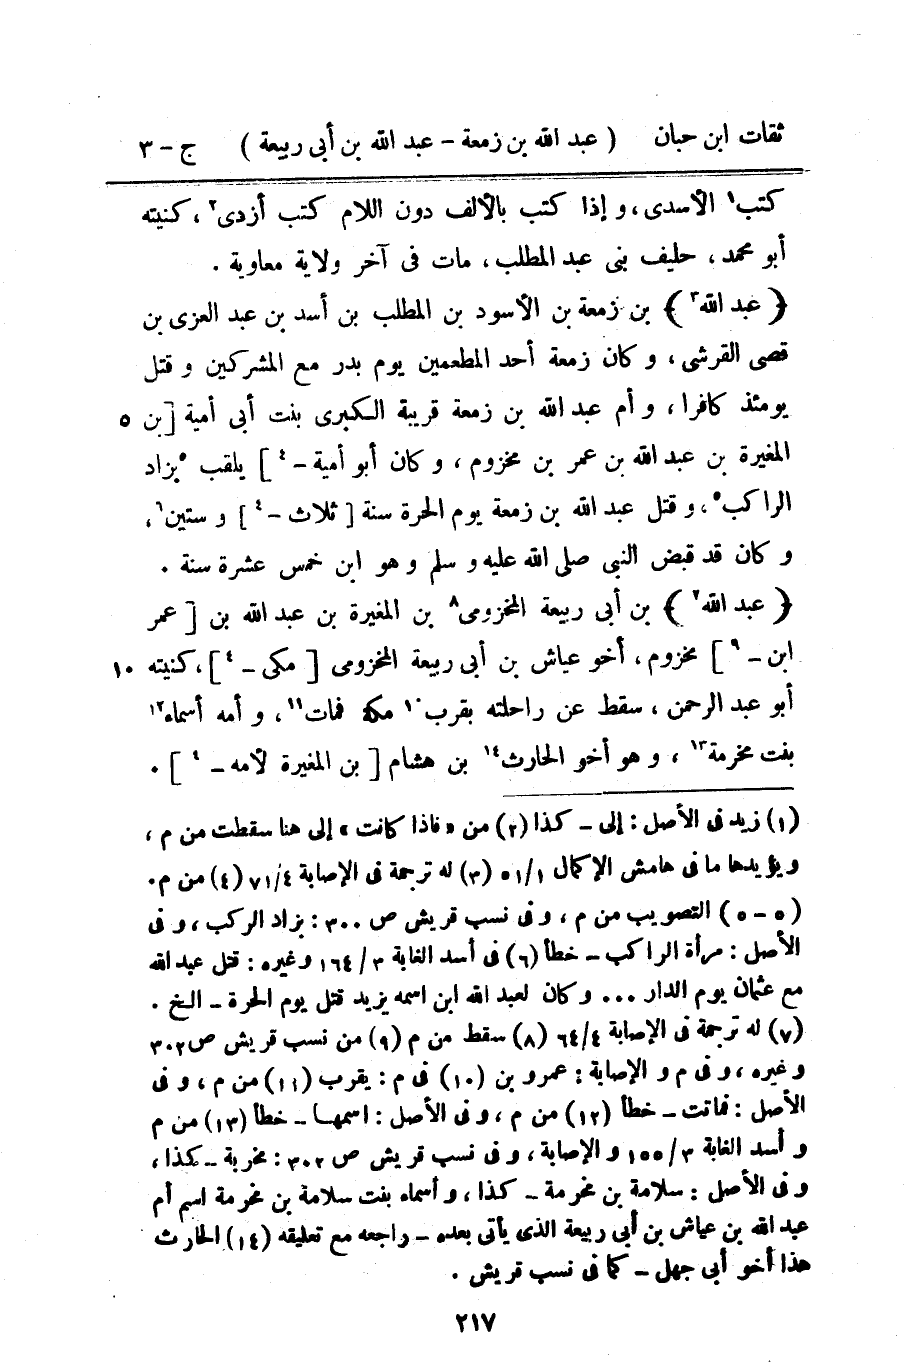 ثقات ابن حبان ( عبد الله بن زمعة – عبد الله بن أبى ربيعة ) ج – ٣
كتب١ الأسدى ، و إذا كتب بالألف دون اللام كتب أزدى٢ ، كنيته
أبو محمد ، حليف بنى عبد المطلب ، مات فى آخر ولاية معاوية .
﴿ عبد الله٣ ﴾ بن زمعة بن الأسود بن المطلب بن أسد بن عبد العزى بن
قصى القرشى ، و كان زمعة أحد المطعمين يوم بدر مع المشركين و قتل
يومئذ كافرا ، و أم عبد الله بن زمعة قريبة الكبرى بنت أبى أمية [ بن ٥
المغيرة بن عبد الله بن عمر بن مخزوم ، و كان أبو أمية – ٤ ] يلقب ٥ بزاد
الراكب٥ ، و قتل عبد الله بن زمعة يوم الحرة سنة [ ثلاث – ٤ ] و ستين٦ ،
و كان قد قبض النبى صلى الله عليه و سلم و هو ابن خمس عشرة سنة .
﴿ عبد الله٧ ﴾ بن أبى ربيعة المخزومى٨ بن المغيرة بن عبد الله بن [ عمر
ابن – ٩ ] مخزوم ، أخو عياش بن أبى ربيعة المخزومى [ مكى – ٤ ] ، كنيته ١٠
أبو عبد الرحمن ، سقط عن راحلته بقرب١٠ مكة فمات١١ ، و أمه أسماء١٢
بنت مخرمة١٣ ، و هو أخو الحارث١٤ بن هشام [ بن المغيرة لأمه – ٤ ] .
(١) زيد فى الأصل : إلى – كذا (٢) من « فاذا كانت » إلى هنا سقطت من م ،
و يؤيدها ما فى هامش الإكمال ١/٥١ (٣) له ترجمة فى الإصابة ٤/٧١ (٤) من م .
(٥ – ٥) التصويب من م ، و فى نسب قريش ص ٣٠٠ : بزاد الركب ، و فى
الأصل : مرأة الراكب – خطأ (٦) فى أسد الغابة ٣/١٦٤ و غيره : قتل عبد الله
مع عثمان يوم الدار ... و كان لعبد الله ابن اسمه يزيد قتل يوم الحرة – الخ .
(٧) له ترجمة فى الإصابة ٤/٦٤ (٨) سقط من م (٩) من نسب قريش ص ٣٠٢
و غيره ، و فى م و الإصابة : عمرو بن (١٠) فى م : يقرب (١١) من م ، و فى
الأصل : فماتت – خطأ (١٢) من م ، و فى الأصل : اسمها – خطأ (١٣) من م
و أسد الغابة ٣/١٥٥ و الإصابة ، و فى نسب قريش ص ٣٠٢ : مخربة – كذا ،
و فى الأصل : سلامة بن مخرمة – كذا ، و أسماء بنت سلامة بن مخرمة اسم أم
عبد الله بن عياش بن أبى ربيعة الذى يأتى بعده – راجعه مع تعليقه (١٤) الحارث
هذا أخو أبى جهل – كما فى نسب قريش .
٢١٧